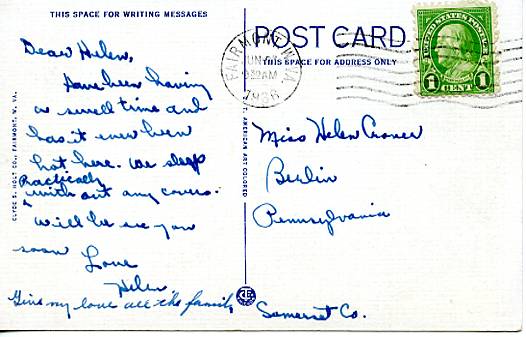 THIS SPACE FOR WRITING MESSAGES
Dear Helen,
Have been having
a swell time and
has it ever been
hot here. We sleep
Practically
with out any covers.
Will be see you
soon
Love
Helen
Give my love all the family
CLYDE S. HOLT CO., FAIRMONT, W. VA.
AMERICAN ART COLORED
POST CARD
THIS SPACE FOR ADDRESS ONLY
FAIRMONT, W. VA.
9 30 AM
UNITED STATES POSTAGE
1 CENT 1
Miss Helen Croner
Berlin
Pennsylvania
Somerset Co.